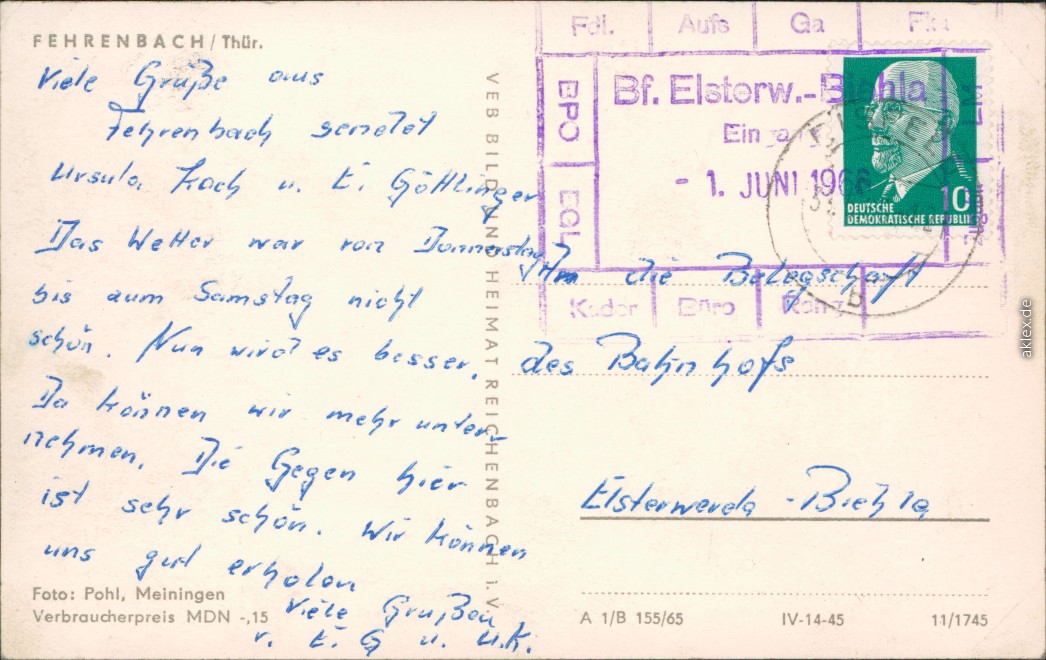 FEHRENBACH / Thür.
Viele Grüße aus
Fehrenbach sendet
Ursula Koch u. E. Göttlinger
Das Wetter war von Donnerstag
bis zum Samstag nicht
schön. Nun wird es besser.
Da können wir mehr unter-
nehmen. Die Gegen hier
ist sehr schön. Wir können
uns gut erholen
Viele Grußen
v. E. G u. U.K.
Foto: Pohl, Meiningen
Verbraucherpreis MDN -,15
VEB BILD UND HEIMAT REICHENBACH i. V.
Fdl. Aufs Ga Fka
BPO
Bf. Elsterw.-Biehla
Eingang
- 1. JUNI 1966
BGL
Kader Büro
10
DEUTSCHE
DEMOKRATISCHE REPUBLIK
An die Belegschaft
des Bahnhofs
Elsterwerda - Biehla
A 1/B 155/65 IV-14-45 11/1745
aklex.de